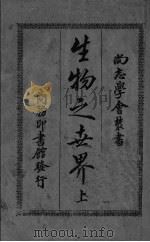 尚志學會叢書
生物之世界 上
務印書館發行